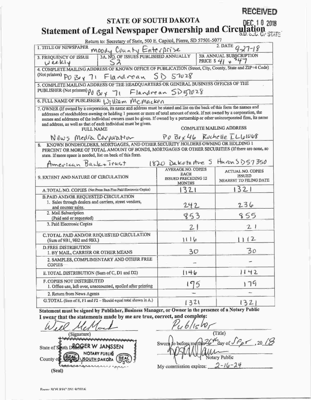 RECEIVED
DEC 10 2018
STATE OF SOUTH DAKOTA
Statement of Legal Newspaper Ownership and Circulation
Return to: Secretary of State, 500 E. Capitol, Pierre, SD 57501-5077
1. TITLE OF NEWSPAPER Moody County Enterprise
2. DATE 9-27-18
3. FREQUENCY OF ISSUE weekly
3A. NO. OF ISSUES PUBLISHED ANNUALLY 52
3B. ANNUAL SUBSCRIPTION PRICE $41 + $47
4. COMPLETE MAILING ADDRESS OF KNOWN OFFICE OF PUBLICATION (Street, City, County, State and ZIP+4 Code) (Not printers)
PO Box 71 Flandreau SD 57028
5. COMPLETE MAILING ADDRESS OF THE HEADQUARTERS OR GENERAL BUSINESS OFFICES OF THE PUBLISHER (Not printer) PO Box 71 Flandreau SD 57028
6. FULL NAME OF PUBLISHER: William McMacken
7. OWNER (If owned by a corporation, its name and address must be stated and also on the back of this form the names and addresses of stockholders owning or holding 1 percent or more of total amount of stock. If not owned by a corporation, the names and addresses of the individual owners must be given. If owned by a partnership or other unincorporated firm, its name and address, as well as that of each individual must be given.
FULL NAME COMPLETE MAILING ADDRESS
News Media Corporation PO Box 46 Rochelle IL 61068
8. KNOWN BONDHOLDERS, MORTGAGES, AND OTHER SECURITY HOLDERS OWNING OR HOLDING 1 PERCENT OR MORE OF TOTAL AMOUNT OF BONDS, MORTGAGES OR OTHER SECURITIES (If there are none, so state. If more space is needed, list on back of this form.
American Bank & Trust 1820 Dakota Ave S Huron SD 57350
9. EXTENT AND NATURE OF CIRCULATION
AVERAGE NO. COPIES EACH ISSUES PRECEDING 12 MONTHS
ACTUAL NO. COPIES ISSUED NEAREST TO FILING DATE
A. TOTAL NO. COPIES 1321 1321
B. PAID AND/OR REQUESTED CIRCULATION
1. Sales through dealers and carriers, street vendors, and counter sales. 242 236
2. Mail Subscription (Paid and or requested) 853 855
3. Paid Electronic Copies 21 21
C. TOTAL PAID AND/OR REQUESTED CIRCULATION (Sum of 9B1, 9B2 and 9B3.) 1116 1112
D. FREE DISTRIBUTION
1. BY MAIL, CARRIER OR OTHER MEANS 30 30
1. SAMPLES, COMPLIMENTARY AND OTHER FREE COPIES
E. TOTAL DISTRIBUTION (Sum of C, D1 and D2) 1146 1142
F. COPIES NOT DISTRIBUTED
1. Office use, left over, unaccounted, spoiled after printing 175 179
2. Return from News Agents
G. TOTAL (Sum of E, F1 and F2 - Should equal total shown in A.) 1321 1321
Statement must be signed by Publisher, Business Manager, or Owner in the presence of a Notary Public
I swear that the statements made by me are true, correct, and complete:
Publisher
(Signature) (Title)
State of South Dakota
County of
ROGER W JANSSEN
NOTARY PUBLIC
SOUTH DAKOTA
SEAL
Sworn to before me 2018
Notary Public
(Seal)
My commission expires: 2-16-24